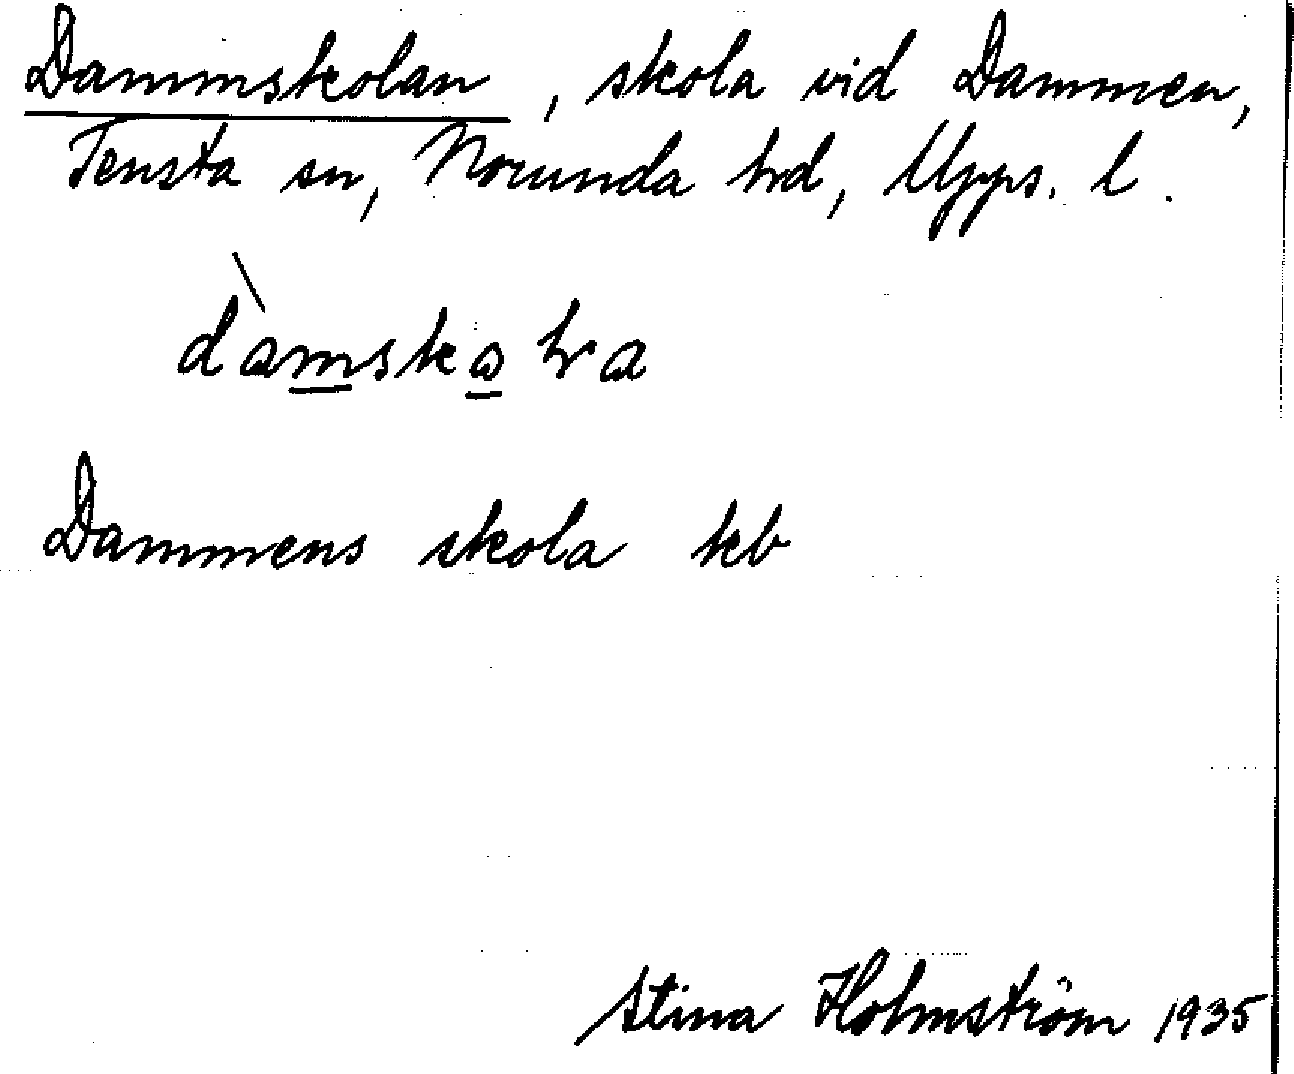 Dammskolan, skola vid Dammen,
Tensta sn, Norunda hrd, Upps. l.
Dammens skola kb
Stina Holmström 1935